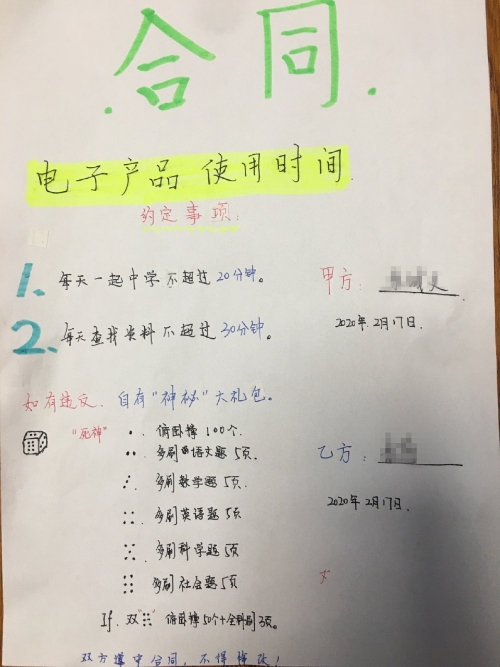 合同
电子产品 使用时间
约定事项:
1. 每天一起中学不超过20分钟。
甲方:
2020年2月17日.
2. 每天查找资料不超过30分钟。
如有违反. 自有“神秘”大礼包。
“死神”
俯卧撑100个.
多刷语文题5页.
乙方:
多刷数学题5页.
2020年2月17日.
多刷英语题5页
多刷科学题5页
多刷社会题5页
If. 双“”俯卧撑50个+全科刷3页。
双方遵守合同,不得